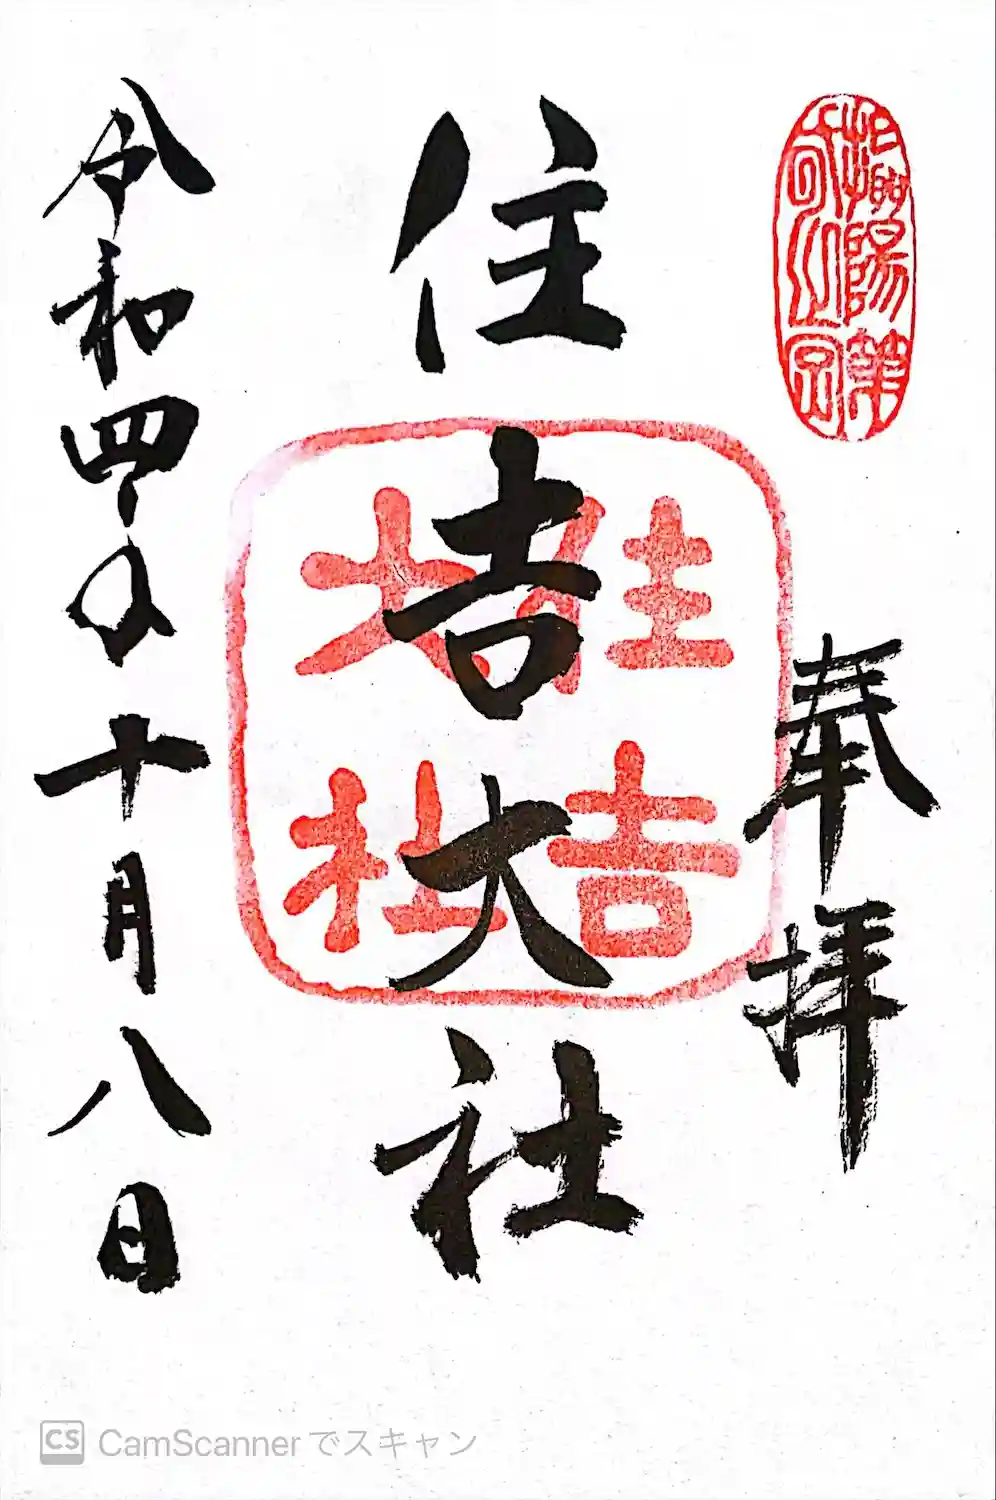 奉拝
住吉大社
住吉
大社
令和四年十月八日
CS CamScanner でスキャン